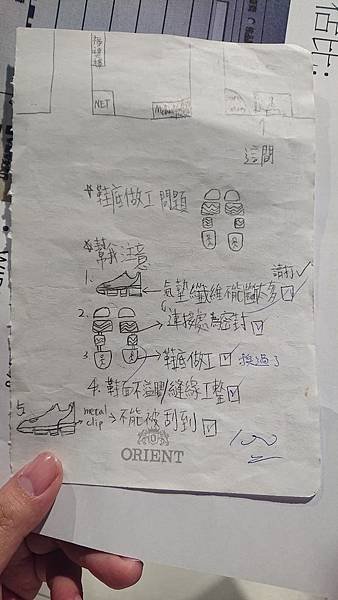 NET
這間
*鞋底做工問題
*幫我注意
請打✓
1. 氣墊纖維不能斷太多 ☑
2. 連接處為密封 ☑
3. 鞋底做工 ☑ 換過了
4. 鞋面不溢膠/縫線工整 ☑
5. metal clip → 不能被刮到 ☑
100
ORIENT